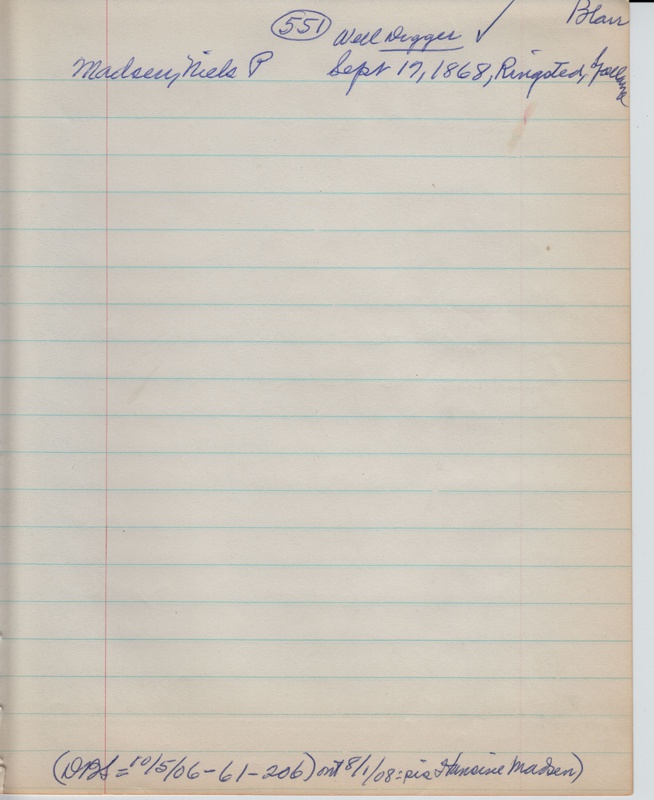 551 Well Digger ✓ Blair
Madsen, Niels P Sept 17, 1868, Ringsted, Sjelland
(DBS = 10/5/06-61-206) ont 8/1/08: sis Hansine Madsen)